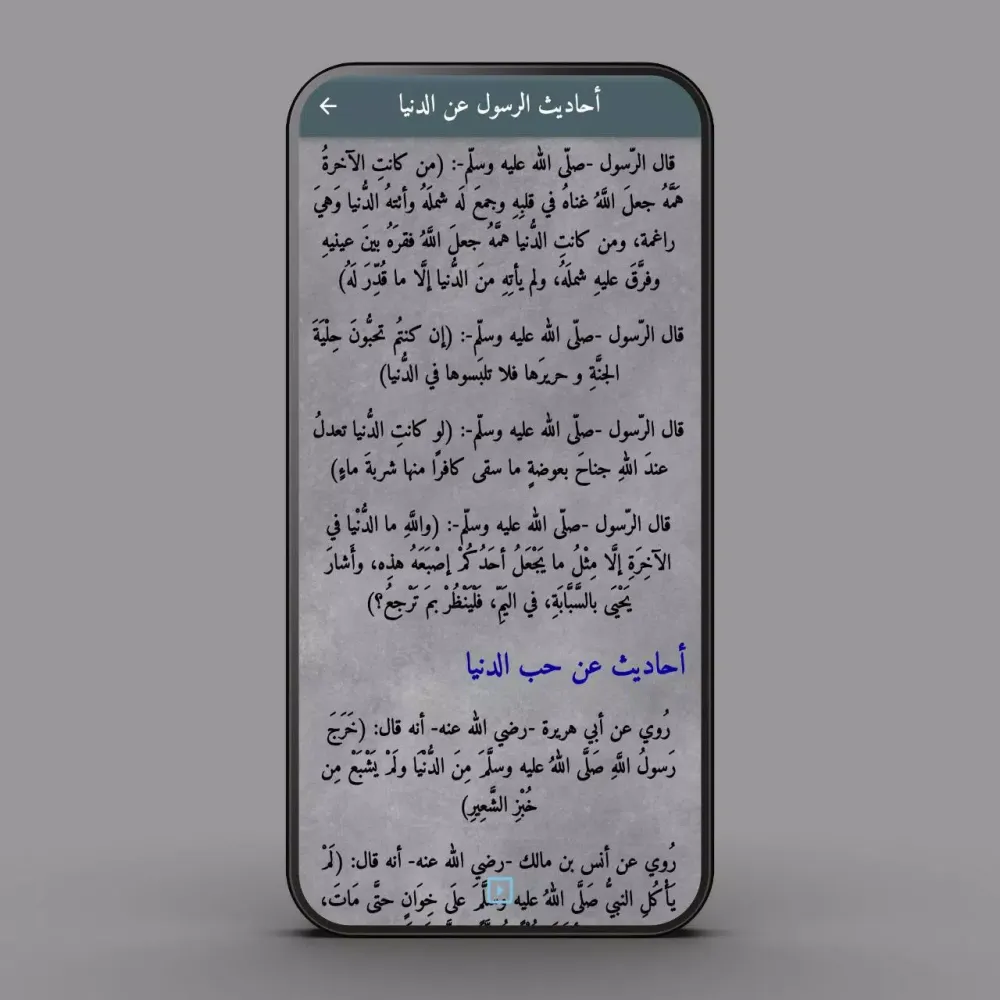 أحاديث الرسول عن الدنيا
قال الرّسول -صلّى الله عليه وسلّم-: (من كانتِ الآخرةُ
هَمَّهُ جعلَ اللَّهُ غناهُ في قلبِهِ وجمعَ لَه شملَهُ وأتتهُ الدُّنيا وَهيَ
راغمة، ومن كانتِ الدُّنيا همَّهُ جعلَ اللَّهُ فقرَهُ بينَ عينيهِ
وفرَّقَ عليهِ شملَهُ، ولم يأتِهِ منَ الدُّنيا إلَّا ما قُدِّرَ لَهُ)
قال الرّسول -صلّى الله عليه وسلّم-: (إن كنتُم تحبُّونَ حِلْيَةَ
الجنَّةِ و حريرَها فلا تلبَسوها في الدُّنيا)
قال الرّسول -صلّى الله عليه وسلّم-: (لو كانتِ الدُّنيا تعدلُ
عندَ اللهِ جناحَ بعوضةٍ ما سقى كافرًا منها شربةَ ماءٍ)
قال الرّسول -صلّى الله عليه وسلّم-: (واللَّهِ ما الدُّنْيا في
الآخِرَةِ إلَّا مِثْلُ ما يَجْعَلُ أحَدُكُمْ إصْبَعَهُ هذِه، وأَشارَ
يَحْيَى بالسَّبَّابَةِ، في اليَمِّ، فَلْيَنْظُرْ بمَ تَرْجِعُ؟)
أحاديث عن حب الدنيا
رُوي عن أبي هريرة -رضي الله عنه- أنه قال: (خَرَجَ
رَسولُ اللَّهِ صَلَّى اللهُ عليه وسلَّمَ مِنَ الدُّنْيَا ولَمْ يَشْبَعْ مِن
خُبْزِ الشَّعِيرِ)
رُوي عن أنس بن مالك -رضي الله عنه- أنه قال: (لَمْ
يَأْكُلِ النبيُّ صَلَّى اللهُ عليه وسلَّمَ علَى خِوَانٍ حتَّى مَاتَ،